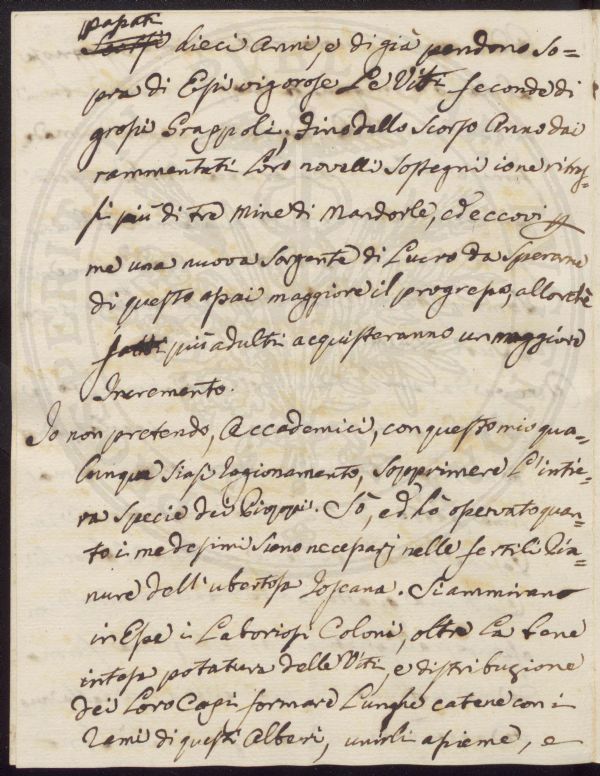 passati
dieci Anni, e di già pendono so=
pra di Essi vigorose Le Viti feconde di
grossi Grappoli; Sino dallo scorso Anno dai
rammentati Loro novelli Sostegni ione ritras=
si più di tre Mine di Mandorle, ed eccovi
me una nuova Sorgente di Lucro da Sperarne
di questo assai maggiore il progresso, allorchè
fatti più adulti acquisteranno un maggiore
Incremento.
Io non pretendo, Accademici, con questo mio qua=
lunque Siasi Ragionamento, Sopprimere L'intie=
ra Specie dei Pioppi. Sò, ed hò opervato quan=
to i medesimi sieno necessarj nelle fertili Pia=
nure dell'ubertosa Toscana. Si ammirano
in Esse i Laboriosi Coloni, oltre La bene
intesa potatura delle Viti, e distribuzione
dei Loro Capi formare Lunghe catene con i
Rami di questi Alberi, unirli assieme, e